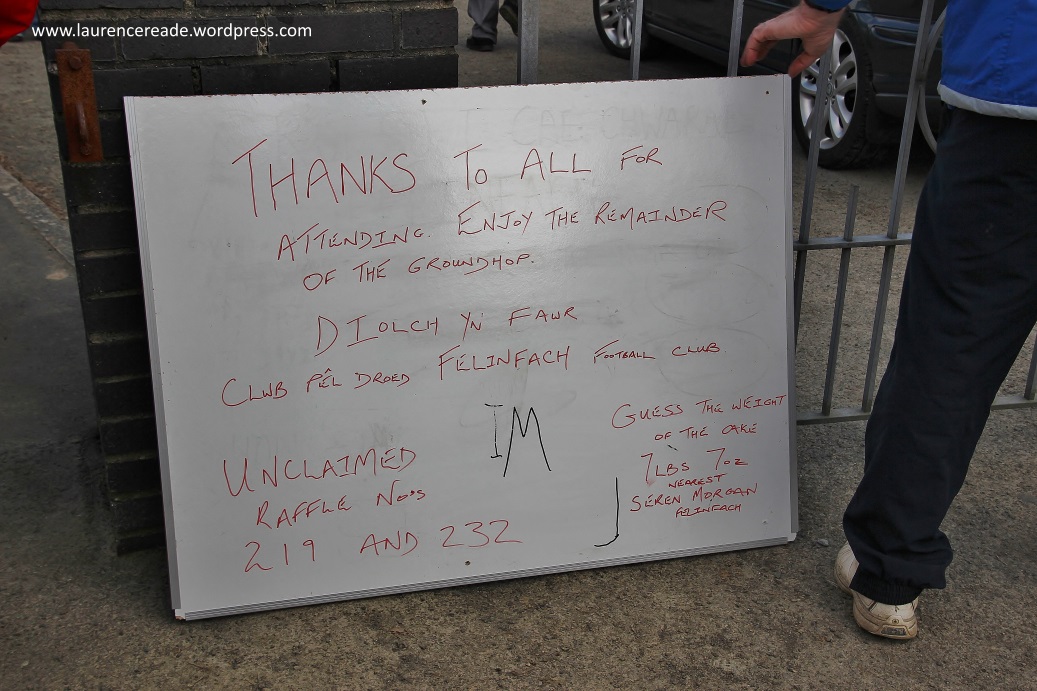 www.laurencereade.wordpress.com
THANKS TO ALL FOR
ATTENDING. ENJOY THE REMAINDER
OF THE GROUNDHOP.
DIOLCH YN FAWR
CLWB PÊL DROED FELINFACH FOOTBALL CLUB
IM
UNCLAIMED
RAFFLE No's
219 AND 232
GUESS THE WEIGHT
OF THE CAKE
7LBS 7oz
NEAREST
SEREN MORGAN
FELINFACH
J